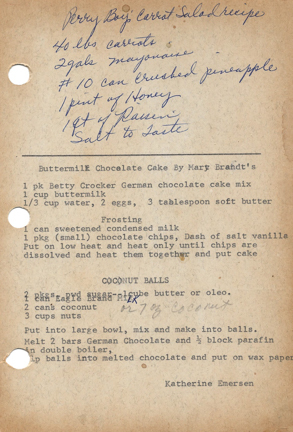 Perry Boys Carrot Salad recipe
40 lbs carrots
2 gals mayonaise
# 10 can crushed pineapple
1 pint of Honey
1 qt of Raisin
Salt to Taste
Buttermilk Chocolate Cake By Mary Brandt's
1 pk Betty Crocker German chocolate cake mix
1 cup buttermilk
1/3 cup water, 2 eggs, 3 tablespoon soft butter
Frosting
1 can sweetened condensed milk
1 pkg (small) chocolate chips, Dash of salt vanilla
Put on low heat and heat only until chips are
dissolved and heat them together and put cake
COCONUT BALLS
2 pkgs. pwd sugar--1cube butter or oleo.
1 can Eagle Brand Milk
2 canb coconut or 7 oz coconut
3 cups nuts
Put into large bowl, mix and make into balls.
Melt 2 bars German Chocolate and ½ block parafin
in double boiler,
balls into melted chocolate and put on wax paper
Katherine Emersen